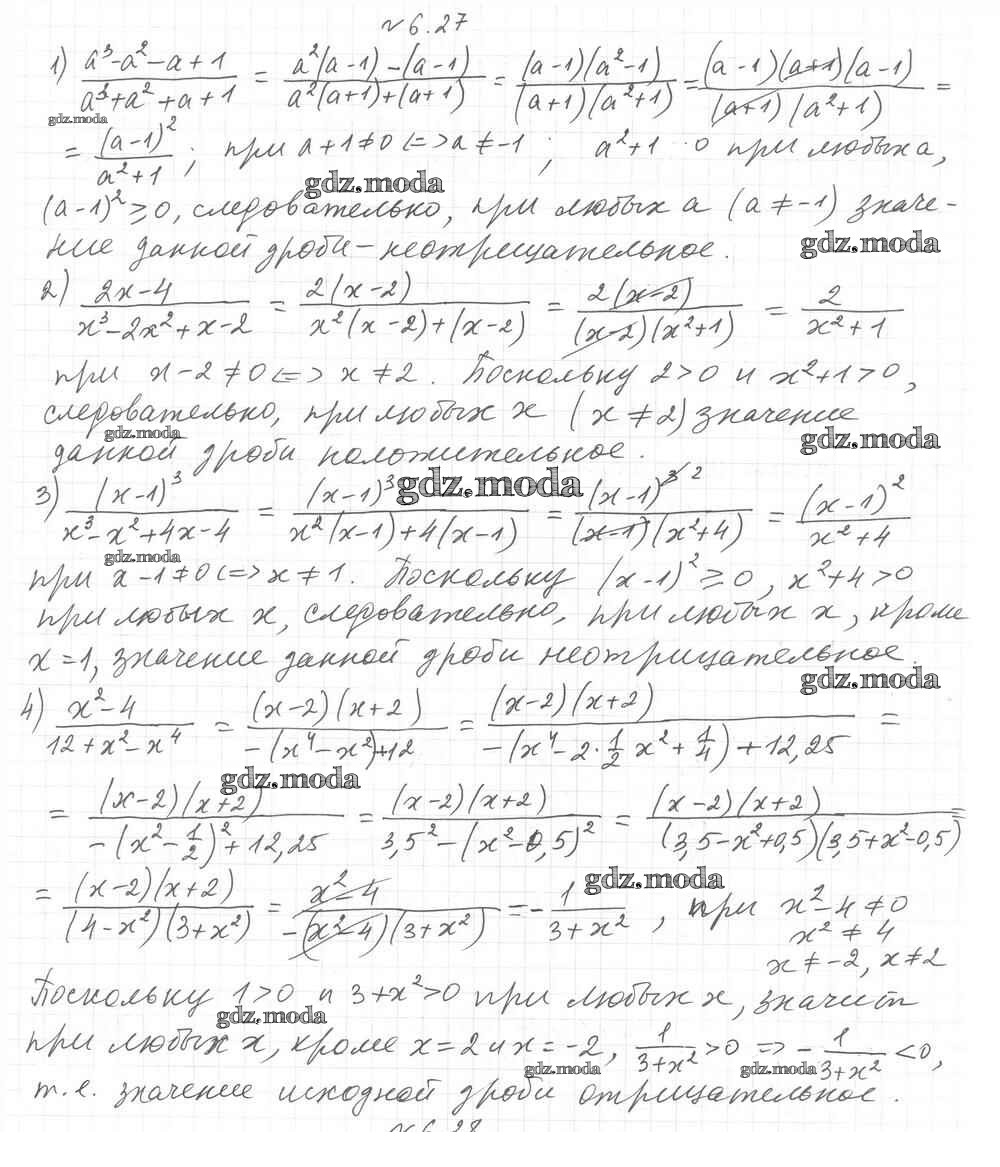 № 6.27
1) (a³-a²-a+1)/(a³+a²+a+1) = (a²(a-1)-(a-1))/(a²(a+1)+(a+1)) = ((a-1)(a²-1))/((a+1)(a²+1)) = ((a-1)(a+1)(a-1))/((a+1)(a²+1)) =
gdz.moda
= (a-1)²/(a²+1) ; при a+1≠0 <=> a≠-1 ; a²+1 0 при любых a,
gdz.moda
(a-1)²≥0, следовательно, при любых a (a≠-1) значе-
ние данной дроби - неотрицательное.
gdz.moda
2) (2x-4)/(x³-2x²+x-2) = (2(x-2))/(x²(x-2)+(x-2)) = (2(x-2))/((x-2)(x²+1)) = 2/(x²+1)
при x-2≠0 <=> x≠2. Поскольку 2>0 и x²+1>0,
следовательно, при любых x (x≠2) значение
gdz.moda gdz.moda
данной дроби положительное.
gdz.moda
3) (x-1)³/(x³-x²+4x-4) = (x-1)³/(x²(x-1)+4(x-1)) = (x-1)³ ²/((x-1)(x²+4)) = (x-1)²/(x²+4)
gdz.moda
при x-1≠0 <=> x≠1. Поскольку (x-1)²≥0, x²+4>0
при любых x, следовательно, при любых x, кроме
x=1, значение данной дроби неотрицательное.
gdz.moda
4) (x²-4)/(12+x²-x⁴) = ((x-2)(x+2))/(-(x⁴-x²)+12) = ((x-2)(x+2))/(-(x⁴-2·1/2 x²+1/4)+12,25) =
gdz.moda
= ((x-2)(x+2))/(-(x²-1/2)²+12,25) = ((x-2)(x+2))/(3,5²-(x²-0,5)²) = ((x-2)(x+2))/((3,5-x²+0,5)(3,5+x²-0,5)) =
gdz.moda
= ((x-2)(x+2))/((4-x²)(3+x²)) = (x²-4)/(-(x²-4)(3+x²)) = -1/(3+x²) , при x²-4≠0
x²≠4
x≠-2, x≠2
Поскольку 1>0 и 3+x²>0 при любых x, значит
gdz.moda
при любых x, кроме x=2 и x=-2, 1/(3+x²)>0 => -1/(3+x²)<0,
gdz.moda gdz.moda
т.е. значение исходной дроби отрицательное.
№ 6.28